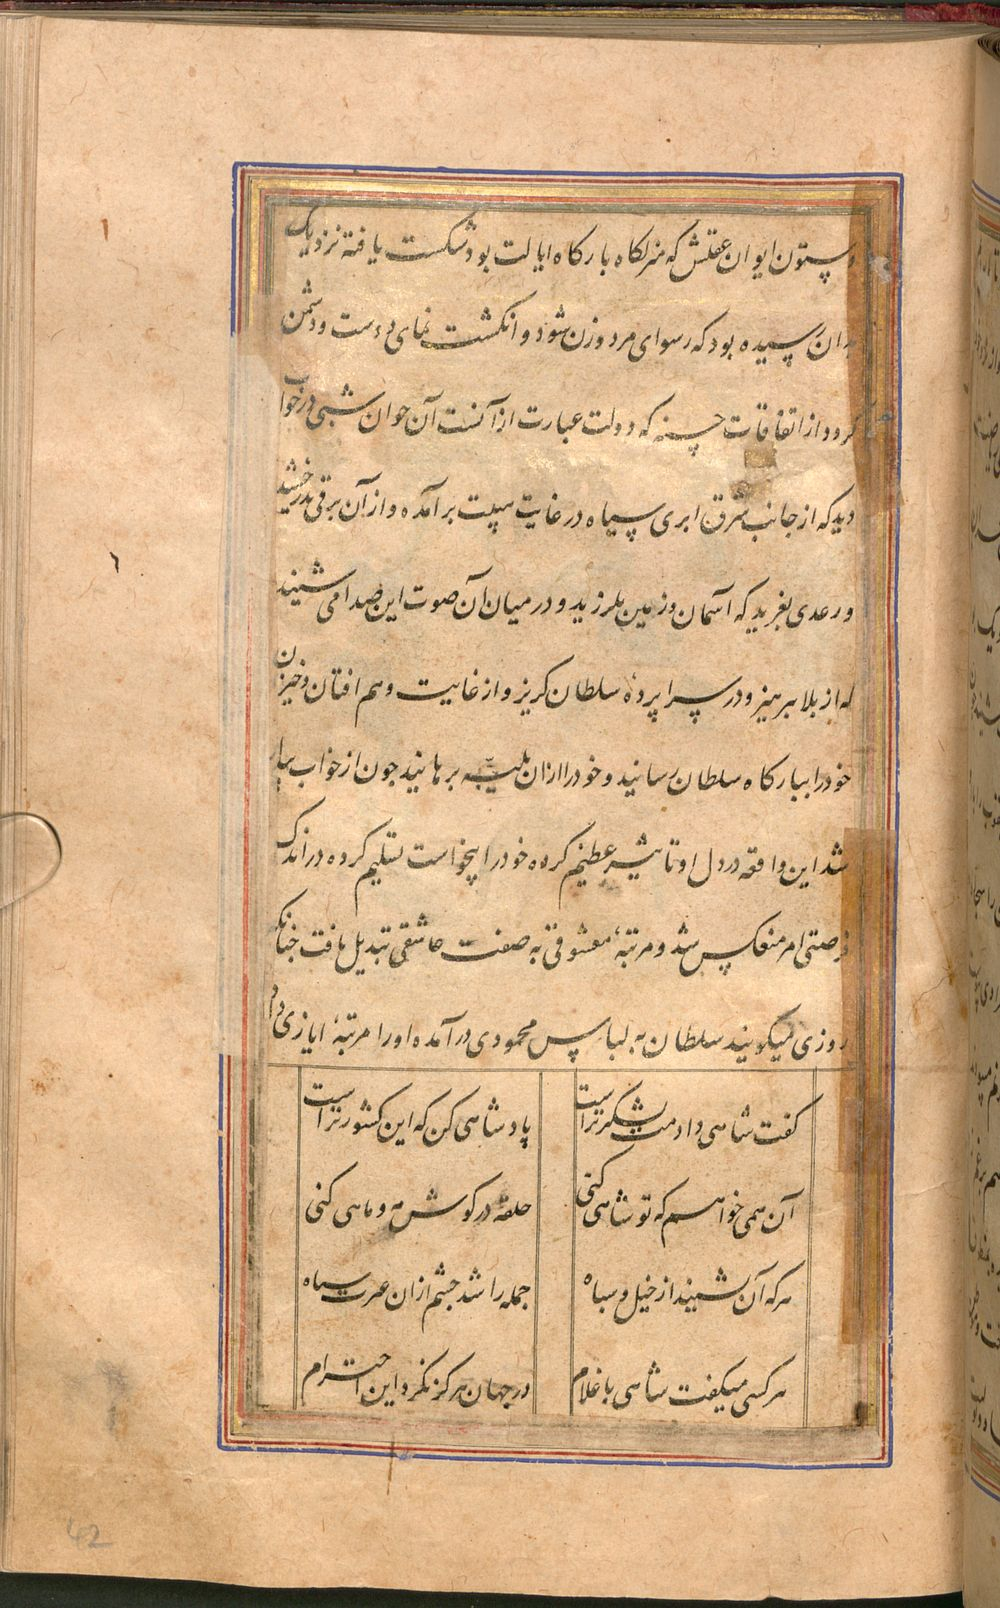 و ستون ایوان عقلش که منزلکاه بارکاه ایالت بود شکست یافته نزدیک
بدان رسیده بود که رسوای مرد و زن شود و انکشت نمای دوست و دشمن
کردد از اتفاقات حسنه که دولت عبارت از آنست آن جوان شبی در خواب
دید که از جانب شرق ابری سیاه در غایت هیبت برآمده و از آن برقی بدرخشید
و رعدی بغرید که آسمان و زمین بلرزید و در میان آن صوت این صدا می شنید
که از بلا بپرهیز و در سراپرده سلطان کریز و از غایت وهم افتان و خیزان
خود را ببارکاه سلطان رسانید و خود را ازان بلیّه برهانید جون از خواب بیدار
شد این واقعه در دل او تاثیر عظیم کرده خود را بخواست تسلیم کرده در اندک
فرصتی امر منعکس شد و مرتبهٔ معشوقی به صفت عاشقی تبدیل یافت جنانک
روزی میکویند سلطان به لباس محمودی درآمده او را مرتبهٔ ایازی داد
کفت شاهی دادمت لشکر تراست پادشاهی کن که این کشور تراست
آن همی خواهم که تو شاهی کنی حلقه در کوش مه و ماهی کنی
هر که آن شنید از خیل و سباه جمله را شد جشم ازان عبرت سیاه
هر کسی میکفت شاهی با غلام در جهان هرکز نکرد این احترام
42